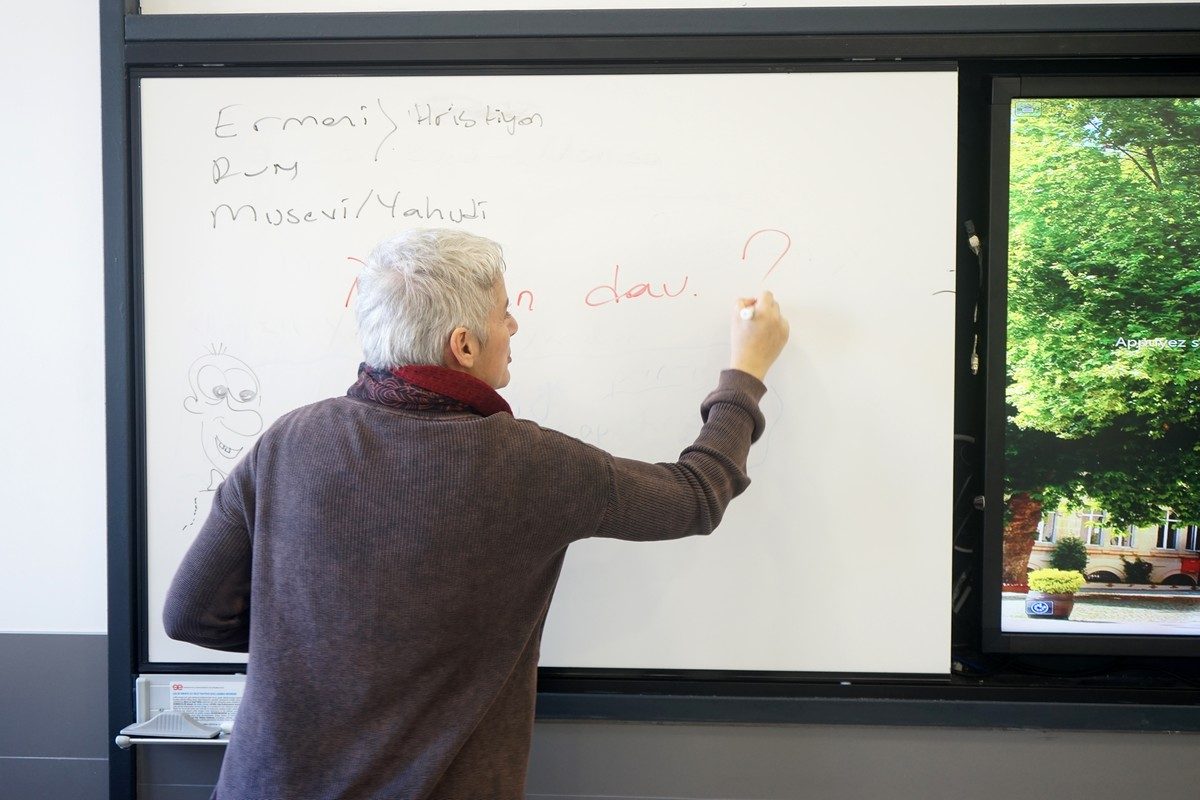 Ermeni } Hristiyan
Rum
Musevi/Yahudi
n dav. ?
Appuyez s